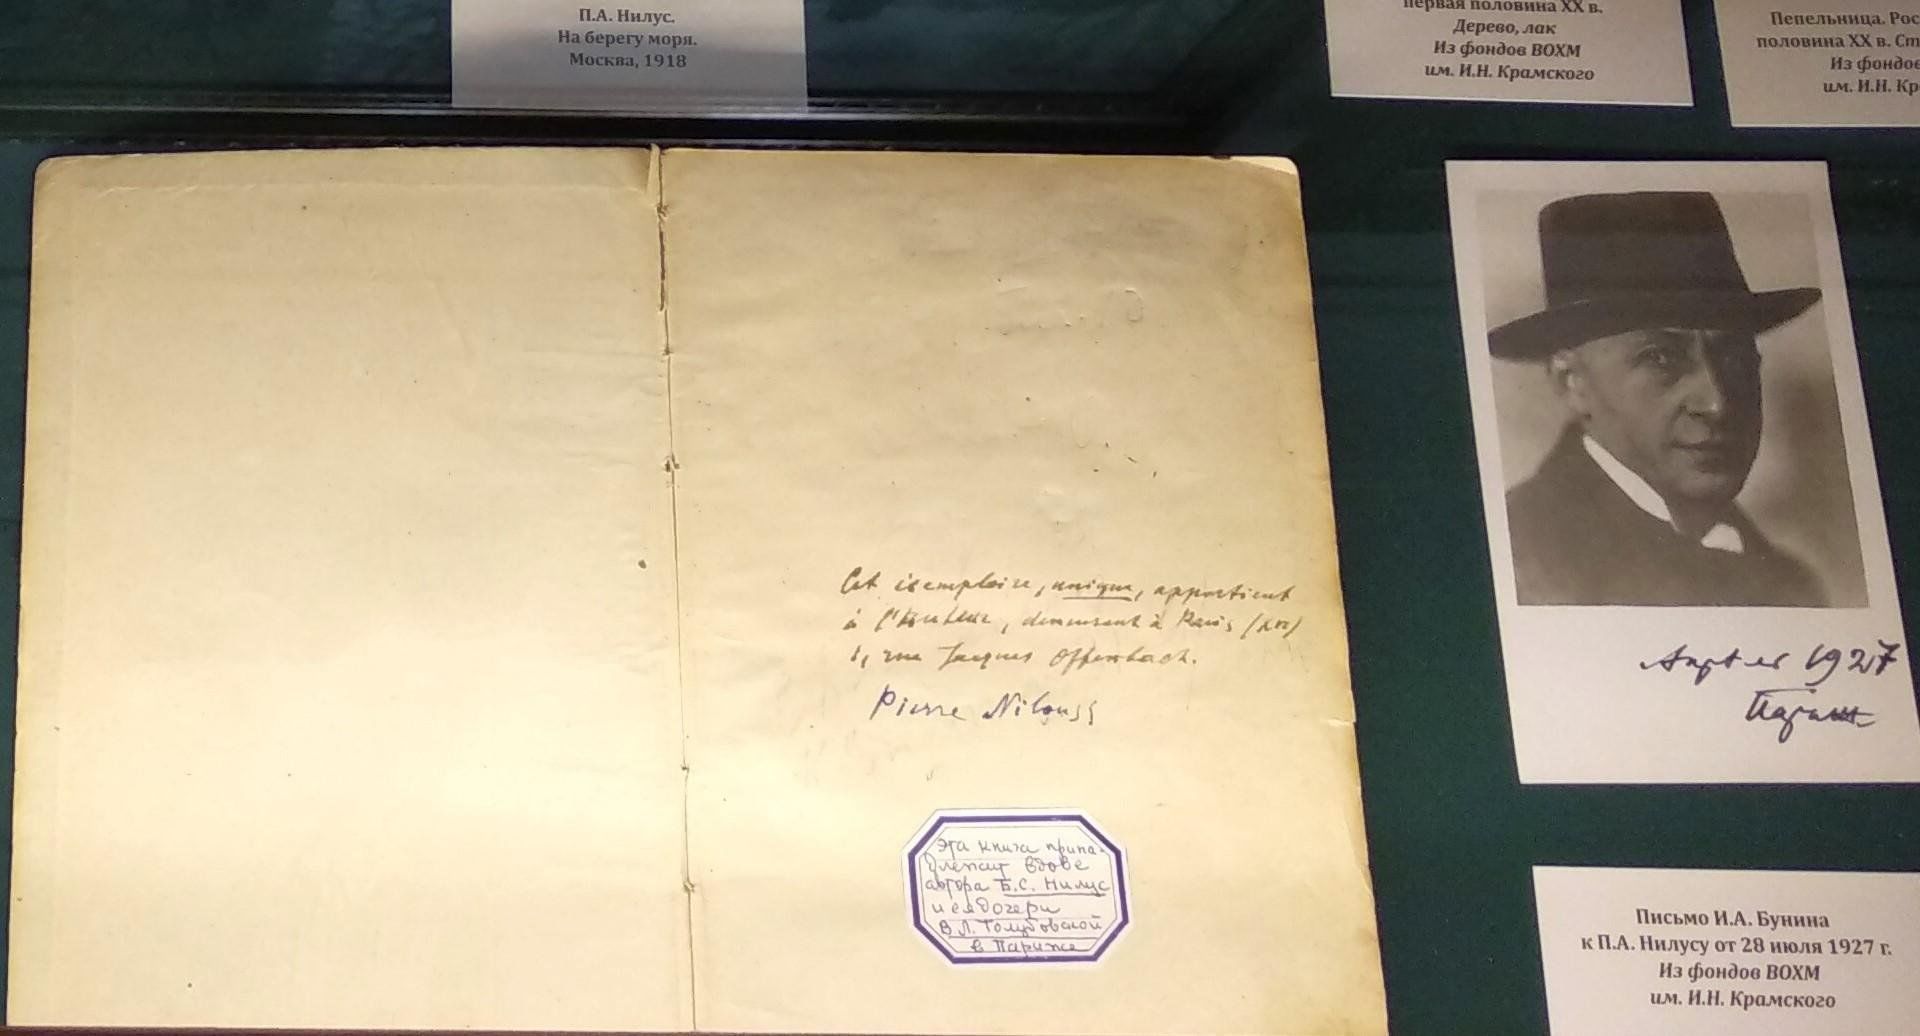 П.А. Нилус.
На берегу моря.
Москва, 1918
первая половина XX в.
Дерево, лак
Из фондов ВОХМ
им. И.Н. Крамского
Пепельница. Рос
половина XX в. Ст
Из фондов
им. И.Н. Кр
Cet exemplaire, unique, appartient
à l'Auteur, demeurant à Paris
rue Jacques Offenbach.
Pierre Nilouss
Эта книга прина-
длежит вдове
автора Б.С. Нилус
и ея дочери
В.Л. Голубовской
в Париже
1927
Париж
Письмо И.А. Бунина
к П.А. Нилусу от 28 июля 1927 г.
Из фондов ВОХМ
им. И.Н. Крамского